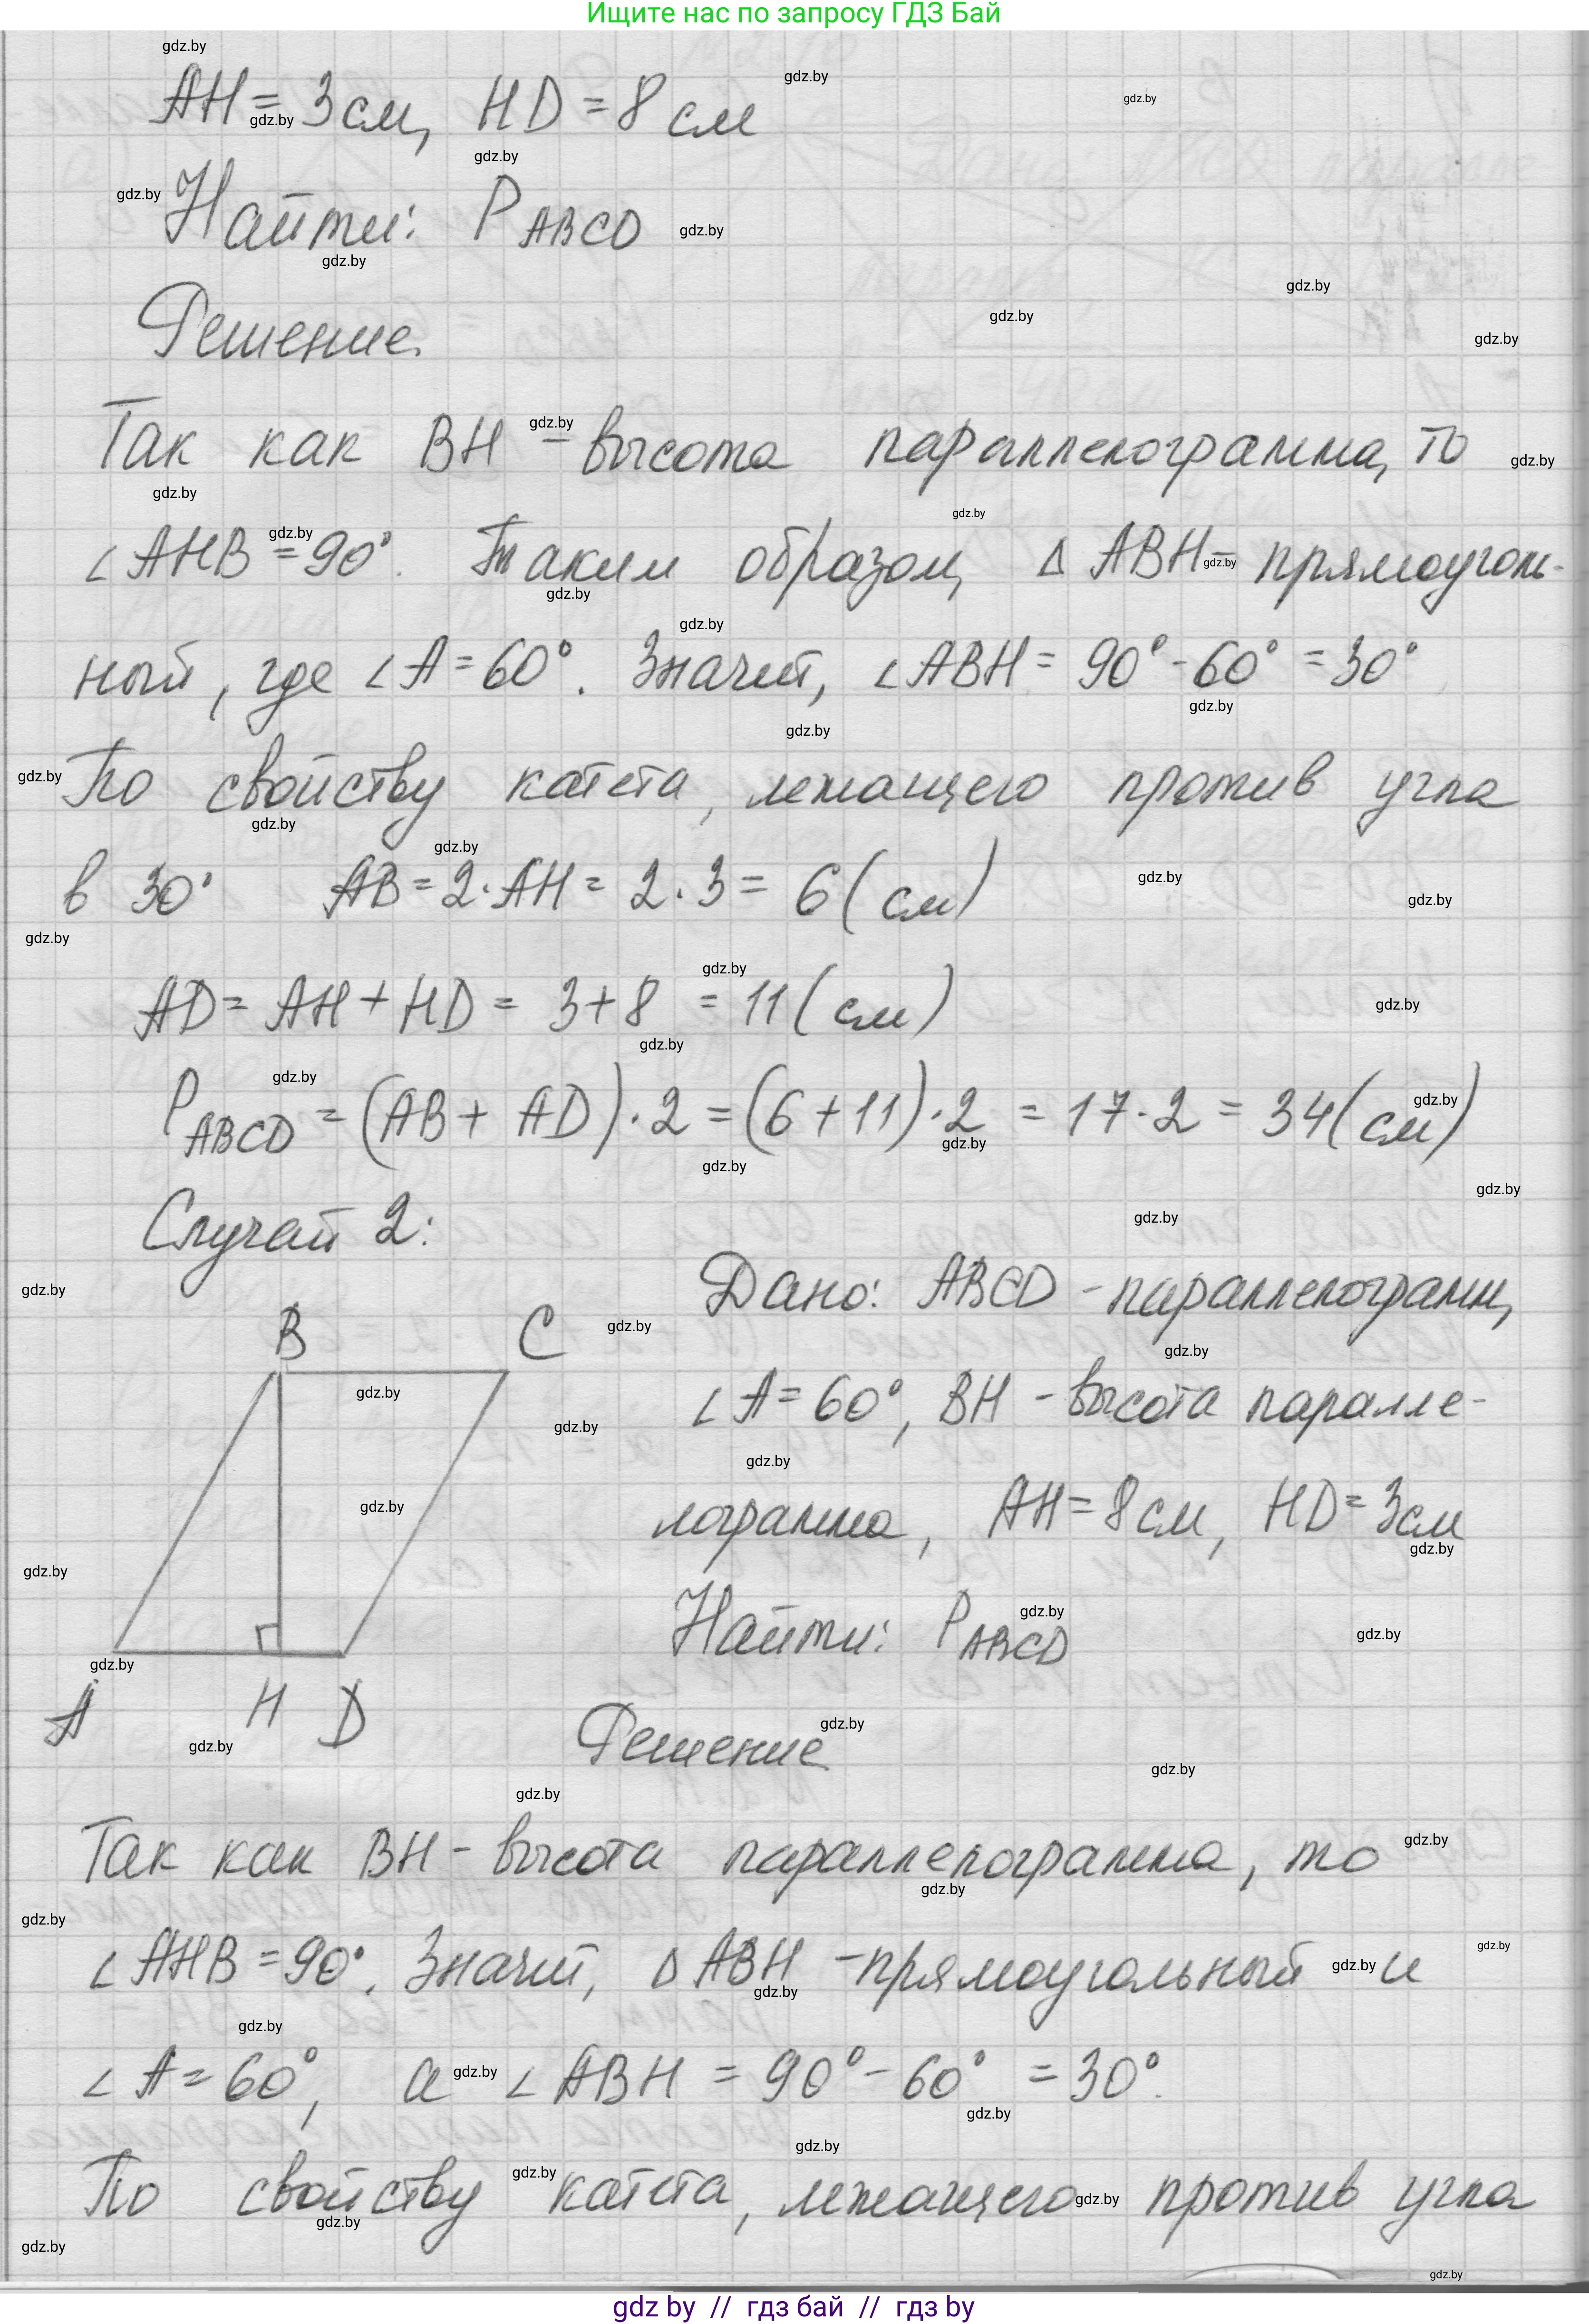 Ищите нас по запросу ГДЗ Бай
AH = 3 см, HD = 8 см
Найти: P ABCD
Решение.
Так как BH – высота параллелограмма, то
∠AHB = 90°. Таким образом, Δ ABH – прямоуголь-
ный, где ∠A = 60°. Значит, ∠ABH = 90° - 60° = 30°
По свойству катета, лежащего против угла
в 30° AB = 2·AH = 2·3 = 6 (см)
AD = AH + HD = 3+8 = 11 (см)
P ABCD = (AB + AD)·2 = (6+11)·2 = 17·2 = 34 (см)
Случай 2:
Дано: ABCD – параллелограмм,
∠A = 60°, BH – высота паралле-
лограмма, AH = 8 см, HD = 3 см
Найти: P ABCD
B C
A H D
Решение
Так как BH – высота параллелограмма, то
∠AHB = 90°. Значит, Δ ABH – прямоугольный и
∠A = 60°, а ∠ABH = 90° - 60° = 30°.
По свойству катета, лежащего против угла
gdz by // гдз бай // гдз by